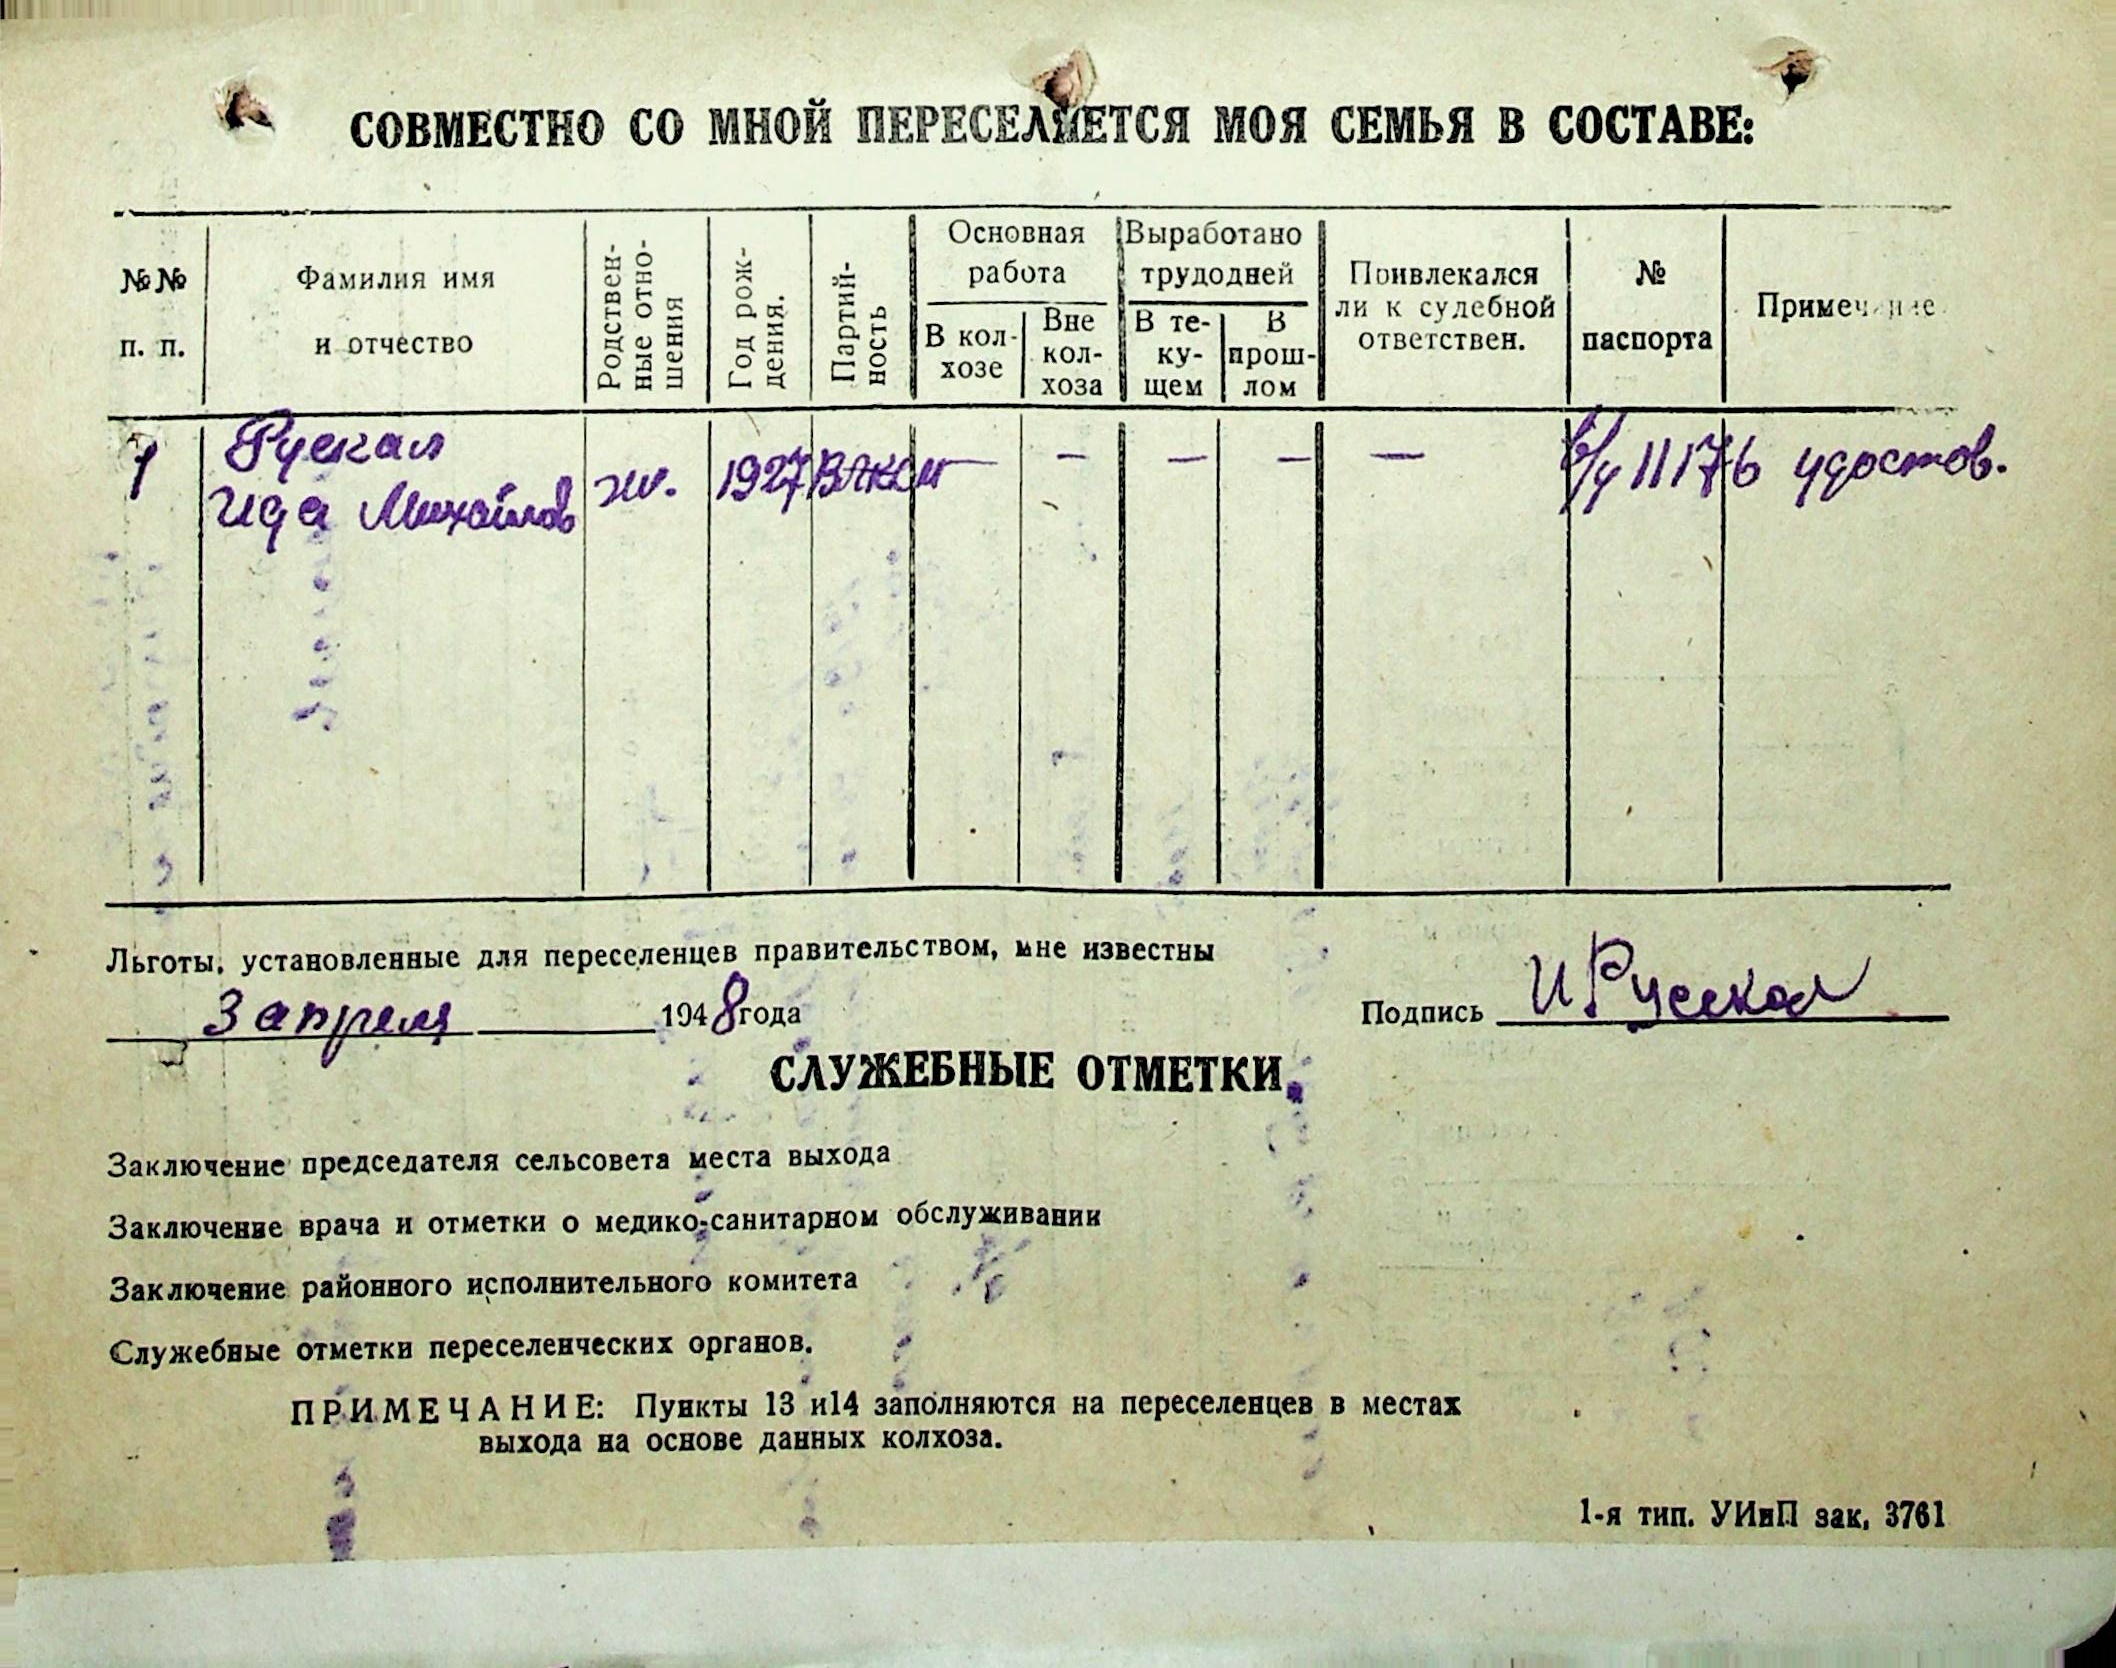 СОВМЕСТНО СО МНОЙ ПЕРЕСЕЛЯЕТСЯ МОЯ СЕМЬЯ В СОСТАВЕ:
№№ п. п.
Фамилия имя и отчество
Родствен-
ные отно-
шения
Год рож-
дения.
Партий-
ность
Основная
работа
В кол-
хозе
Вне
кол-
хоза
Выработано
трудодней
В те-
ку-
щем
В
прош-
лом
Привлекался
ли к судебной
ответствен.
№
паспорта
Примечание
1 Руская
Ида Михайлов ж. 1927 ВЛКСМ — — — — — в/у 11176 удостов.
Льготы, установленные для переселенцев правительством, мне известны
3 апреля 1948 года
Подпись И Русская
СЛУЖЕБНЫЕ ОТМЕТКИ.
Заключение председателя сельсовета места выхода
Заключение врача и отметки о медико-санитарном обслуживании
Заключение районного исполнительного комитета
Служебные отметки переселенческих органов.
ПРИМЕЧАНИЕ: Пункты 13 и14 заполняются на переселенцев в местах
выхода на основе данных колхоза.
1-я тип. УИиП зак. 3761